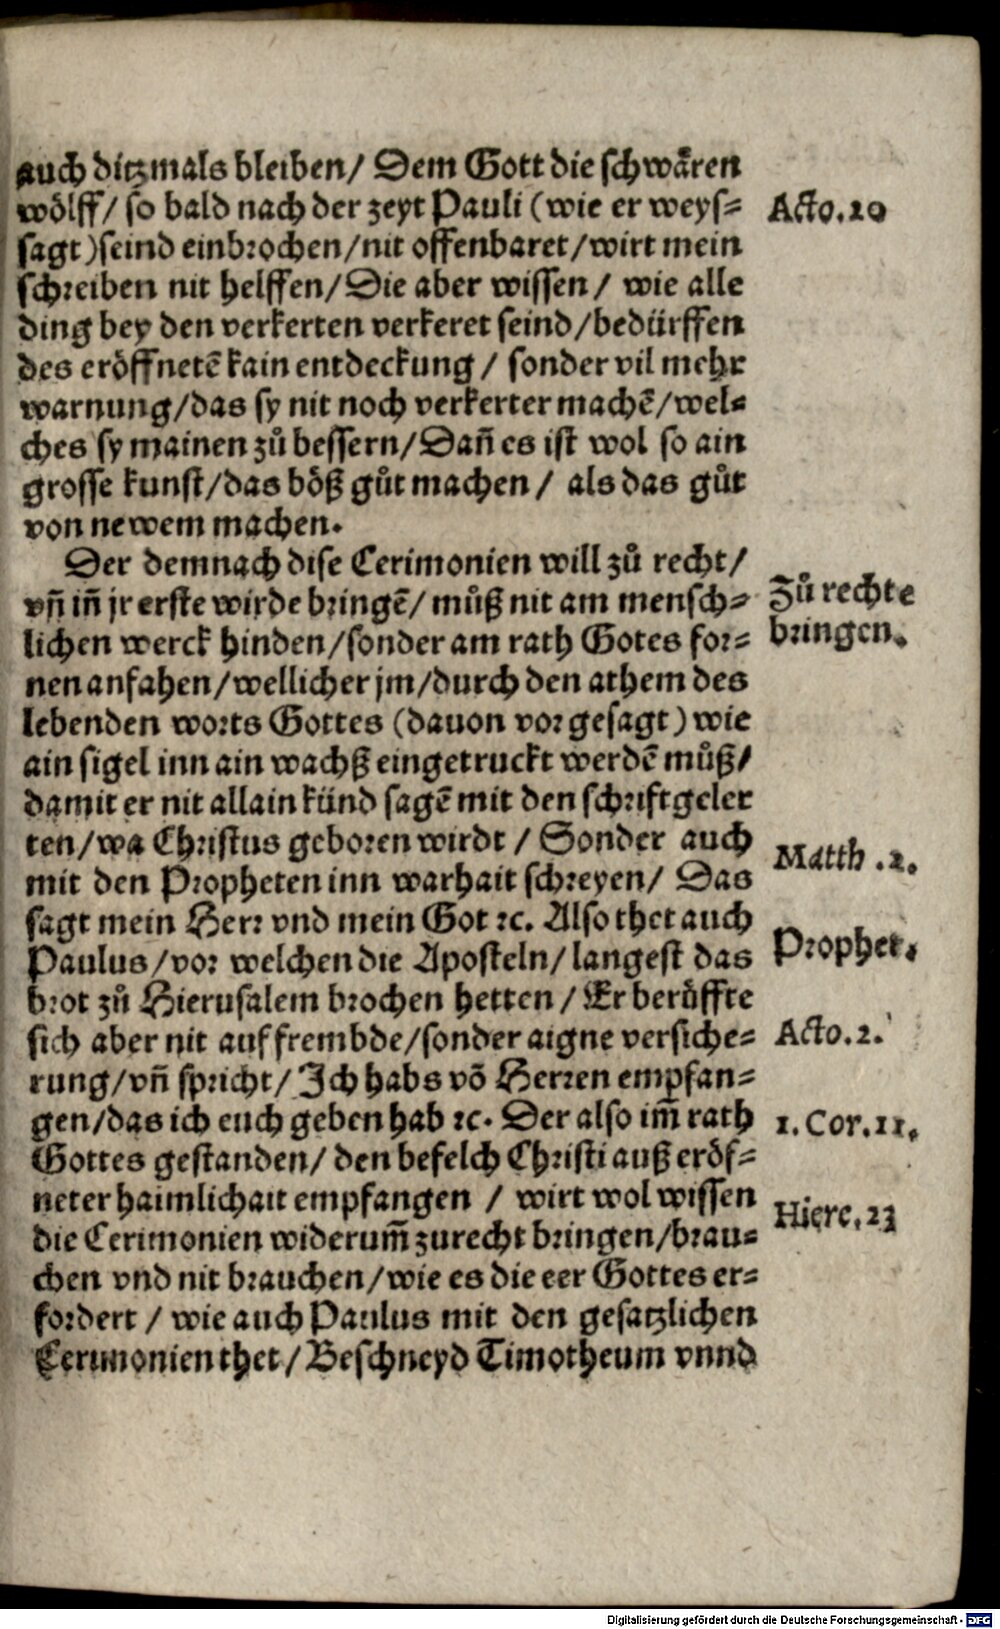 auch ditzmals bleiben/ Dem Gott die schwären
wölff/ so bald nach der zeyt Pauli (wie er weys=
Acto.20
sagt)seind einbrochen/nit offenbaret/wirt mein
schreiben nit helffen/Die aber wissen/ wie alle
ding bey den verkerten verkeret seind/bedürffen
des eröffnetē kain entdeckung/ sonder vil mehr
warnung/das sy nit noch verkerter machē/wel=
ches sy mainen zů bessern/Dañ es ist wol so ain
grosse kunst/das böß gůt machen/ als das gůt
von newem machen.
Der demnach dise Cerimonien will zů recht/
vñ iñ jr erste wirde bringē/ můß nit am mensch=
Zů rechte
lichen werck hinden/sonder am rath Gotes for=
bringen.
nen anfahen/wellicher jm/durch den athem des
lebenden worts Gottes (dauon vor gesagt) wie
ain sigel inn ain wachß eingetruckt werdē můß/
damit er nit allain künd sagē mit den schriftgeler
ten/wa Christus geboren wirdt/ Sonder auch
Matth.2.
mit den Propheten inn warhait schreyen/ Das
sagt mein Herr vnd mein Got ꝛc. Also thet auch
Prophet.
Paulus/vor welchen die Aposteln/langest das
brot zů Hierusalem brochen hetten/ Er berůffte
sich aber nit auf frembde/sonder aigne versiche=
Acto.2.
rung/vñ spricht/ Ich habs vō Herren empfan=
gen/das ich euch geben hab ꝛc. Der also im̄ rath
1.Cor.11.
Gottes gestanden/ den befelch Christi auß eröf=
neter haimlichait empfangen/ wirt wol wissen
Hiere.23
die Cerimonien widerum̄ zurecht bringen/brau=
chen vnd nit brauchen/wie es die eer Gottes er=
fordert/ wie auch Paulus mit den gesatzlichen
Cerimonien thet/Beschneyd Timotheum vnnd
Digitalisierung gefördert durch die Deutsche Forschungsgemeinschaft - DFG